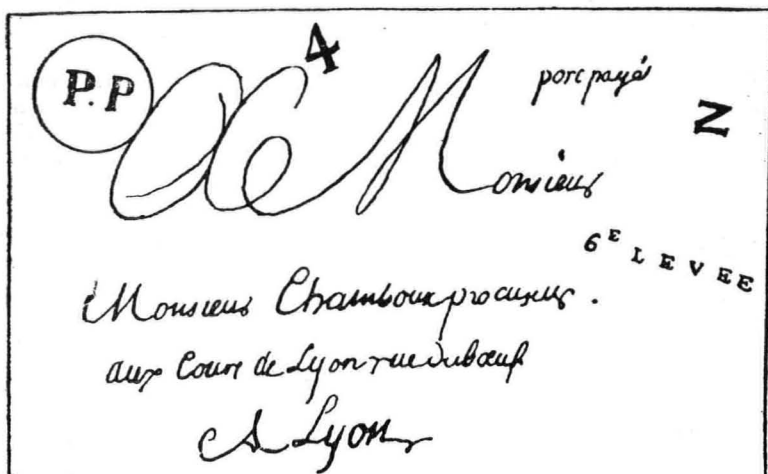 P.P
4
port payé
N
A Monsieur
6E LEVEE
Monsieur Chamboux procureur.
aux Cours de Lyon rue du bœuf
A Lyon